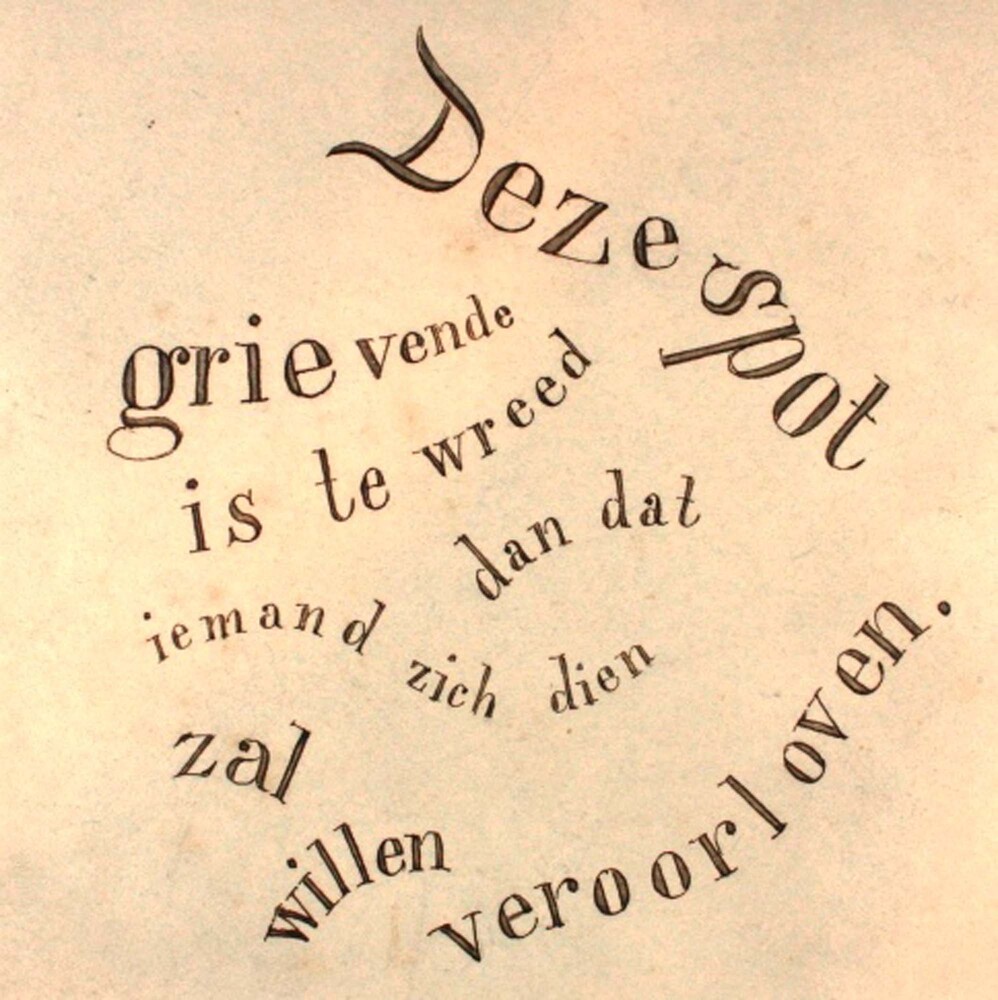 Deze spot
grievende
is te wreed
dan dat
iemand zich dien
zal
willen veroorloven.